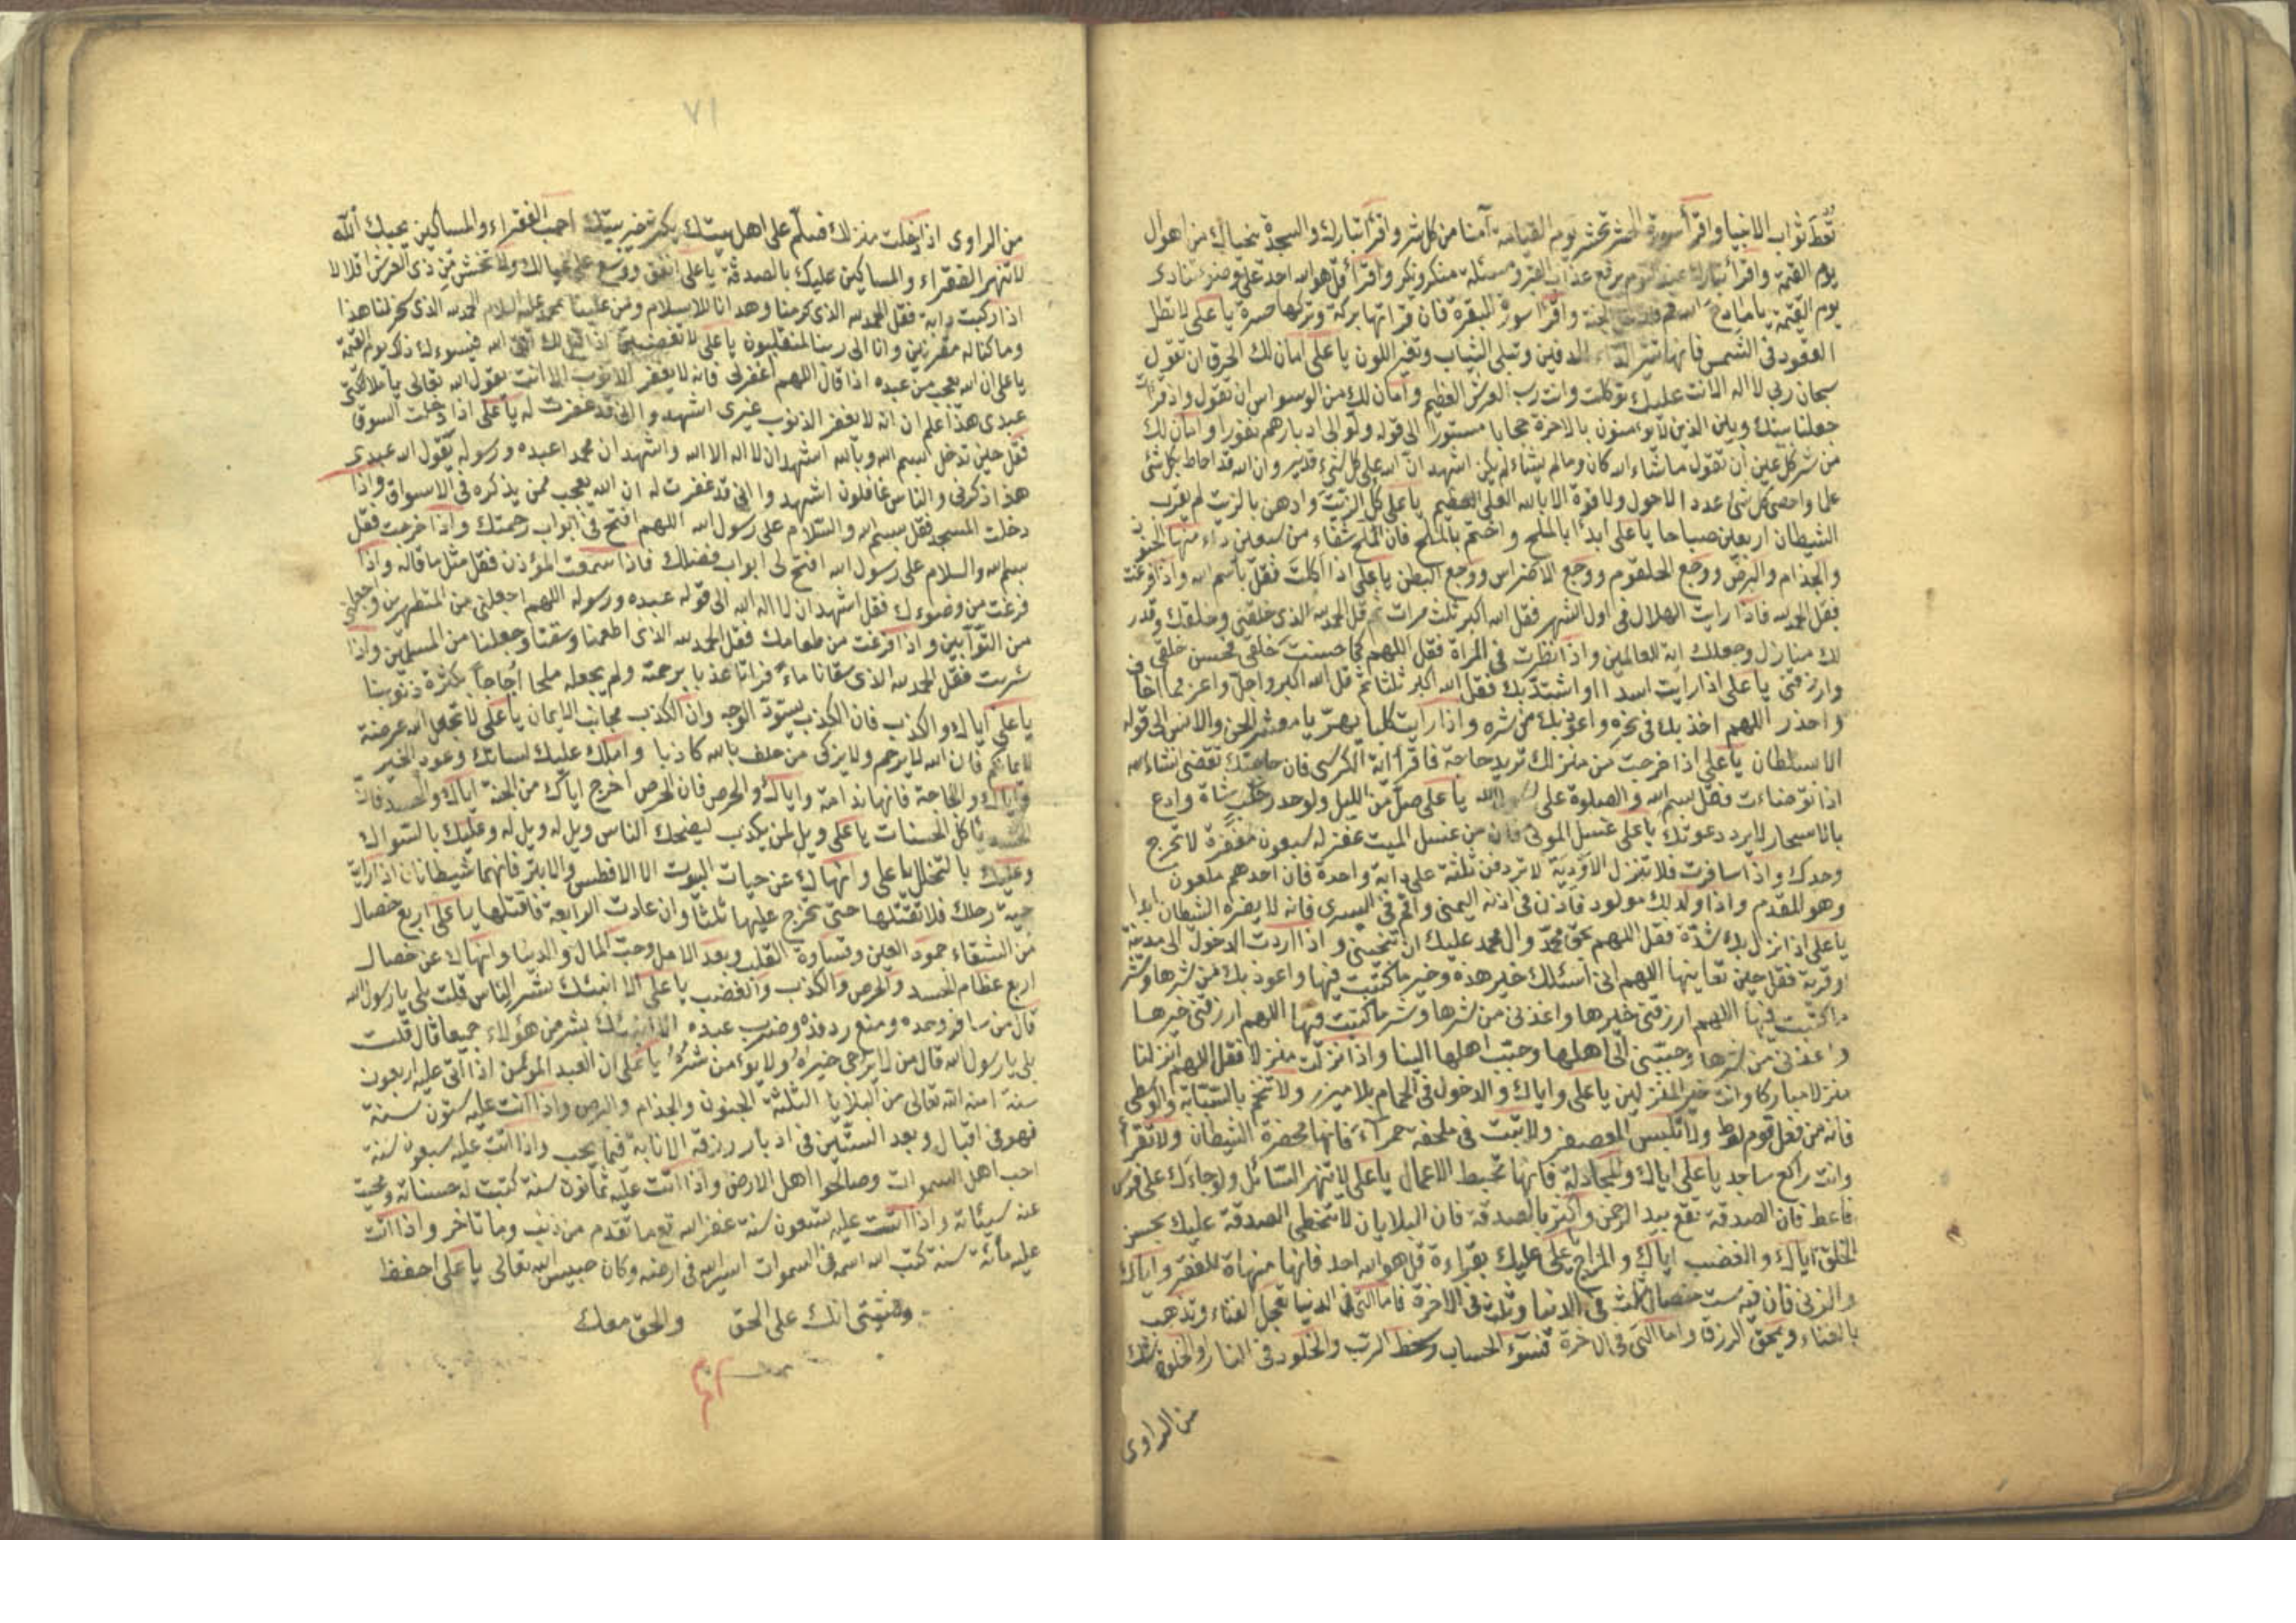 تعط ثواب الانبيا واقرأ سورة الحشر تحشر يوم القيامة آمنا من كل شر واقرأ تبارك والسجدة ينجيانك من اهوال
يوم القيمة واقرأ تبارك عند النوم يرفع عذاب القبر ومسئلة منكر ونكير واقرأ قل هو الله احد على وضوء تنادى
يوم القيمة يا مادح الله قم فادخل الجنة واقرأ سورة البقرة فان قراتها بركة وتركها حسرة يا على لا تطل
القعود فى الشمس فانها تثير الداء الدفين وتبلى الثياب وتغير اللون يا على امان لك الحرق ان تقول
سبحان ربى لا اله الا انت عليك توكلت وانت رب العرش العظيم وامان لك من الوسواس ان تقول واذ قرأت
جعلنا بينك وبين الذين لا يومنون بالاخرة حجابا مستورا الى قوله ولوا لى ادبارهم نفورا وامان لك
من شر كل عين ان تقول ما شاء الله كان وما لم يشاء لم يكن اشهد ان الله على كل شئ قدير وان الله قد احاط بكل شئ
علما واحصى كل شئ عددا لا حول ولا قوة الا بالله العلى العظيم يا على كل الزيت وادهن بالزيت لم يقرب
الشيطان اربعين صباحا يا على ابدأ بالملح واختم بالملح فان الملح شفاء من سبعين داء منها الجنون
والجذام والبرص ووجع الحلقوم ووجع الاضراس ووجع البطن يا على اذا اكلت فقل باسم الله واذا فرغت
فقل الحمد لله فاذا رايت الهلال فى اول الشهر فقل الله اكبر ثلث مرات ثم قل الحمد لله الذى خلقنى وخلقك وقدر
لك منازل وجعلك اية للعالمين واذا نظرت فى المراة فقل اللهم كما حسنت خلقى فحسن خلقى
وارزقنى يا على اذا رايت اسدا او اشتد بك فقل الله اكبر ثلثا ثم قل الله اكبر واجل واعز مما اخاف
واحذر اللهم اخذ بك فى نحره واعوذ بك من شره واذا رايت كلبا يهر يا معشر الجن والانس الى قوله
الا بسلطان يا على اذا خرجت من منزلك تريد حاجة فاقرأ اية الكرسى فان حاجتك تقضى انشاء الله
اذا توضاءت فقل بسم الله والصلوة على رسول الله يا على صل من الليل ولو قدر حلب شاة وادع
بالاسحار لا يرد دعوتك يا على غسل الموتى فان من غسل الميت غفر له سبعون مغفرة لا تخرج
وحدك واذا سافرت فلا تنزل الاودية لا تردفن ثلثة على دابة واحدة فان احدهم ملعون
وهو المقدم واذا ولد لك مولود فاذن فى اذنه اليمنى واقم فى اليسرى فانه لا يضره الشيطان ابدا
يا على اذا نزل بك شدة فقل اللهم بحق محمد وال محمد عليك ان تنجينى واذا اردت الدخول الى مدينة
او قرية فقل حين تعاينها اللهم انى اسئلك خير هذه وخير ما كتبت فيها واعوذ بك من شرها وشر
ما كتبت فيها اللهم ارزقنى خيرها واعذنى من شرها وشر ما كتبت فيها اللهم ارزقنى خيرها
واعذنى من شرها وحببنى الى اهلها وحبب اهلها الينا واذا نزلت منزلا فقل اللهم انزلنا
منزلا مباركا وانت خير المنزلين يا على واياك والدخول فى الحمام بلا ميزر ولا تختم بالسبابة والوسطى
فانه من فعل قوم لوط ولا تلبس المعصفر ولا تبت فى ملحفه حمراء فانها محضرة الشيطان ولا تقرأ
وانت راكع ساجد يا على اياك والمجادلة فانها تحبط الاعمال يا على لا تنهر السائل ولو جاءك على فرس
فاعط فان الصدقة تقع بيد الرحمن واكثر بالصدقة فان البلايا لا تتخطى الصدقة عليك بحسن
الخلق اياك والغضب اياك والمزاح يا على عليك بقراءة قل هو الله احد فانها منهاة للفقر واياك
والزنى فان فيه ست خصال ثلث فى الدنيا وثلث فى الاخرة فاما التى فى الدنيا تعجل الفناء وتذهب
بالغناء ويمحق الرزق واما التى فى الاخرة فسوء الحساب وسخط الرب والخلود فى النار والخلود
من الراوى
٧١
من الراوى اذا دخلت منزلك فسلم على اهل بيتك يكثر خير بيتك احب الفقراء والمساكين يحبك الله
لا تنهر الفقراء والمساكين عليك بالصدقة يا على انفق ووسع على عيالك ولا تخش من ذى العرش اقلالا
اذا ركبت دابة فقل الحمد لله الذى كرمنا وهدانا للاسلام ومن علينا بمحمد عليه السلام الحمد لله الذى سخر لنا هذا
وما كنا له مقرنين وانا الى ربنا لمنقلبون يا على لا تغضبن اذا قيل لك اتق الله فيسوءك ذلك يوم القيمة
يا على ان الله يعجب من عبده اذا قال اللهم اغفر لى فانه لا يغفر الذنوب الا انت يقول الله تعالى يا ملائكتى
عبدى هذا علم ان انه لا يغفر الذنوب غيرى اشهدوا انى قد غفرت له يا على اذا دخلت السوق
فقل حين تدخل بسم الله وبالله اشهد ان لا اله الا الله واشهد ان محمدا عبده ورسوله يقول الله عبدى
هذا ذكرنى والناس غافلون اشهدوا انى قد غفرت له ان الله يعجب ممن يذكره فى الاسواق واذا
دخلت المسجد فقل بسم الله والسلام على رسول الله اللهم افتح لى ابواب رحمتك واذا خرجت فقل
بسم الله والسلام على رسول الله افتح لى ابواب فضلك فاذا سمعت المؤذن فقل مثل ما قاله واذا
فرغت من وضوءك فقل اشهد ان لا اله الا الله الى قوله عبده ورسوله اللهم اجعلنى من المتطهرين واجعلنى
من التوابين واذا فرغت من طعامك فقل الحمد لله الذى اطعمنا وسقنا وجعلنا من المسلمين واذا
شربت فقل الحمد لله الذى سقانا ماء فراتا عذبا برحمته ولم يجعله ملحا اجاجا بكثرة ذنوبنا
يا على اياك والكذب فان الكذب يسود الوجه وان الكذب مجانب الايمان يا على لا تجعل الله عرضة
لايمانكم فان الله لا يرحم ولا يزكى من حلف بالله كاذبا واملك عليك لسانك وعود الخير
واياك واللجاجة فانها ندامة واياك والحرص فان الحرص اخرج اباك من الجنة اياك والحسد فانه
الحسد تاكل الحسنات يا على ويل لمن يكذب ليضحك الناس ويل له ويل له وعليك بالسواك
وعليك بالتخلل يا على وانهاك عن حيات البيوت الا الافطس والابتر فانهما شيطانان اذا رايت
حية رحلك فلا تقتلها حتى تخرج عليها ثلثا وان عادت الرابعة فاقتلها يا على اربع خصال
من الشقاء جمود العين وقساوة القلب وبعد الامل وحب المال والدنيا وانهاك عن خصال
اربع عظام الحسد والحرص والكذب والغضب يا على الا انبئك بشر الناس قلت بلى يا رسول الله
قال من سافر وحده ومنع رفده وضرب عبده الا انبئك بشر من هؤلاء جميعا قال قلت
بلى يا رسول الله قال من لا يرجى خيره ولا يؤمن شره يا على ان العبد المؤمن اذا اتى عليه اربعون
سنة امنه الله تعالى من البلايا الثلثة الجنون والجذام والبرص واذا اتت عليه ستون سنة
فهو فى اقبال وبعد الستين فى ادبار رزقه الانابة فيما يحب واذا اتت عليه سبعون سنة
احب اهل السموات وصالحوا اهل الارض واذا اتت عليه ثمانون سنة كتبت له حسناته ومحيت
عنه سيئاته واذا اتت عليه تسعون سنة غفر الله تع ما تقدم من ذنب وما تاخر واذا اتت
عليه مائة سنة كتب الله اسمه فى السموات اسير الله فى ارضه وكان حبيس الله تعالى يا على احفظ
وصيتى انك على الحق والحق معك